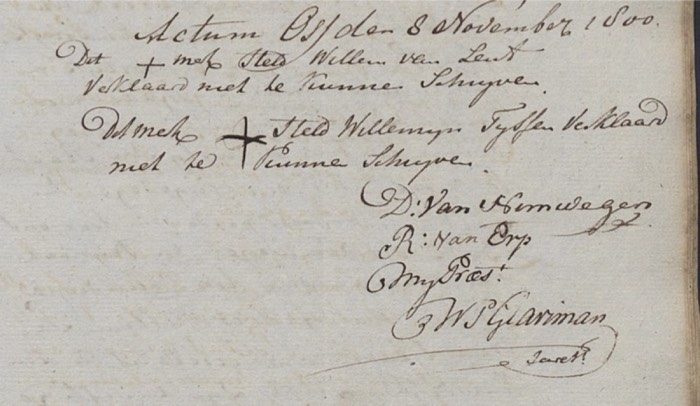 Actum Oss den 8 November 1800.
Dit + merk Steld Willem van Lent
Verklaard niet te Kunne Schryven.
Dit merk + Steld Willemyn Tyssen Verklaard
niet te Kunne Schryven.
D: Van Nimwegen
R: Van Erp
My Præs.t
Secret.s